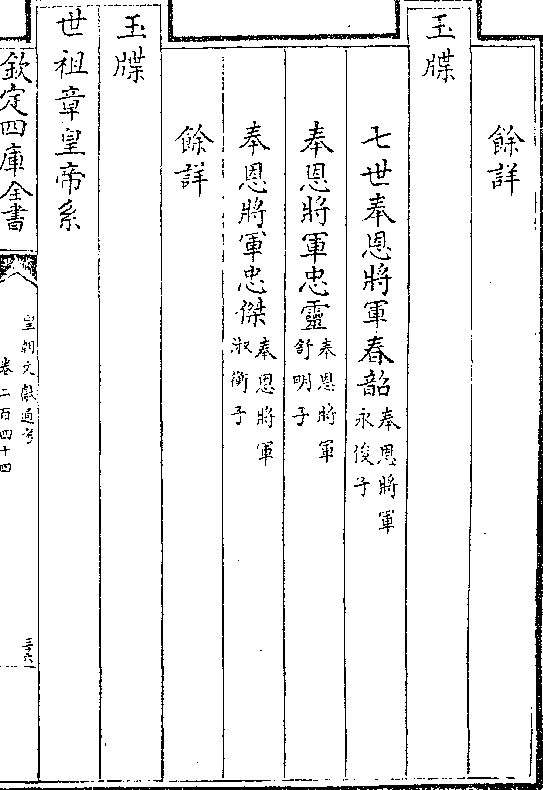 餘詳
玉牒
七世奉恩將軍春韶奉恩將軍永俊子
奉恩將軍忠靈奉恩將軍舒明子
奉恩將軍忠傑奉恩將軍淑衡子
餘詳
玉牒
世祖章皇帝系
欽定四庫全書
皇朝文獻通考
卷二百四十四
三六